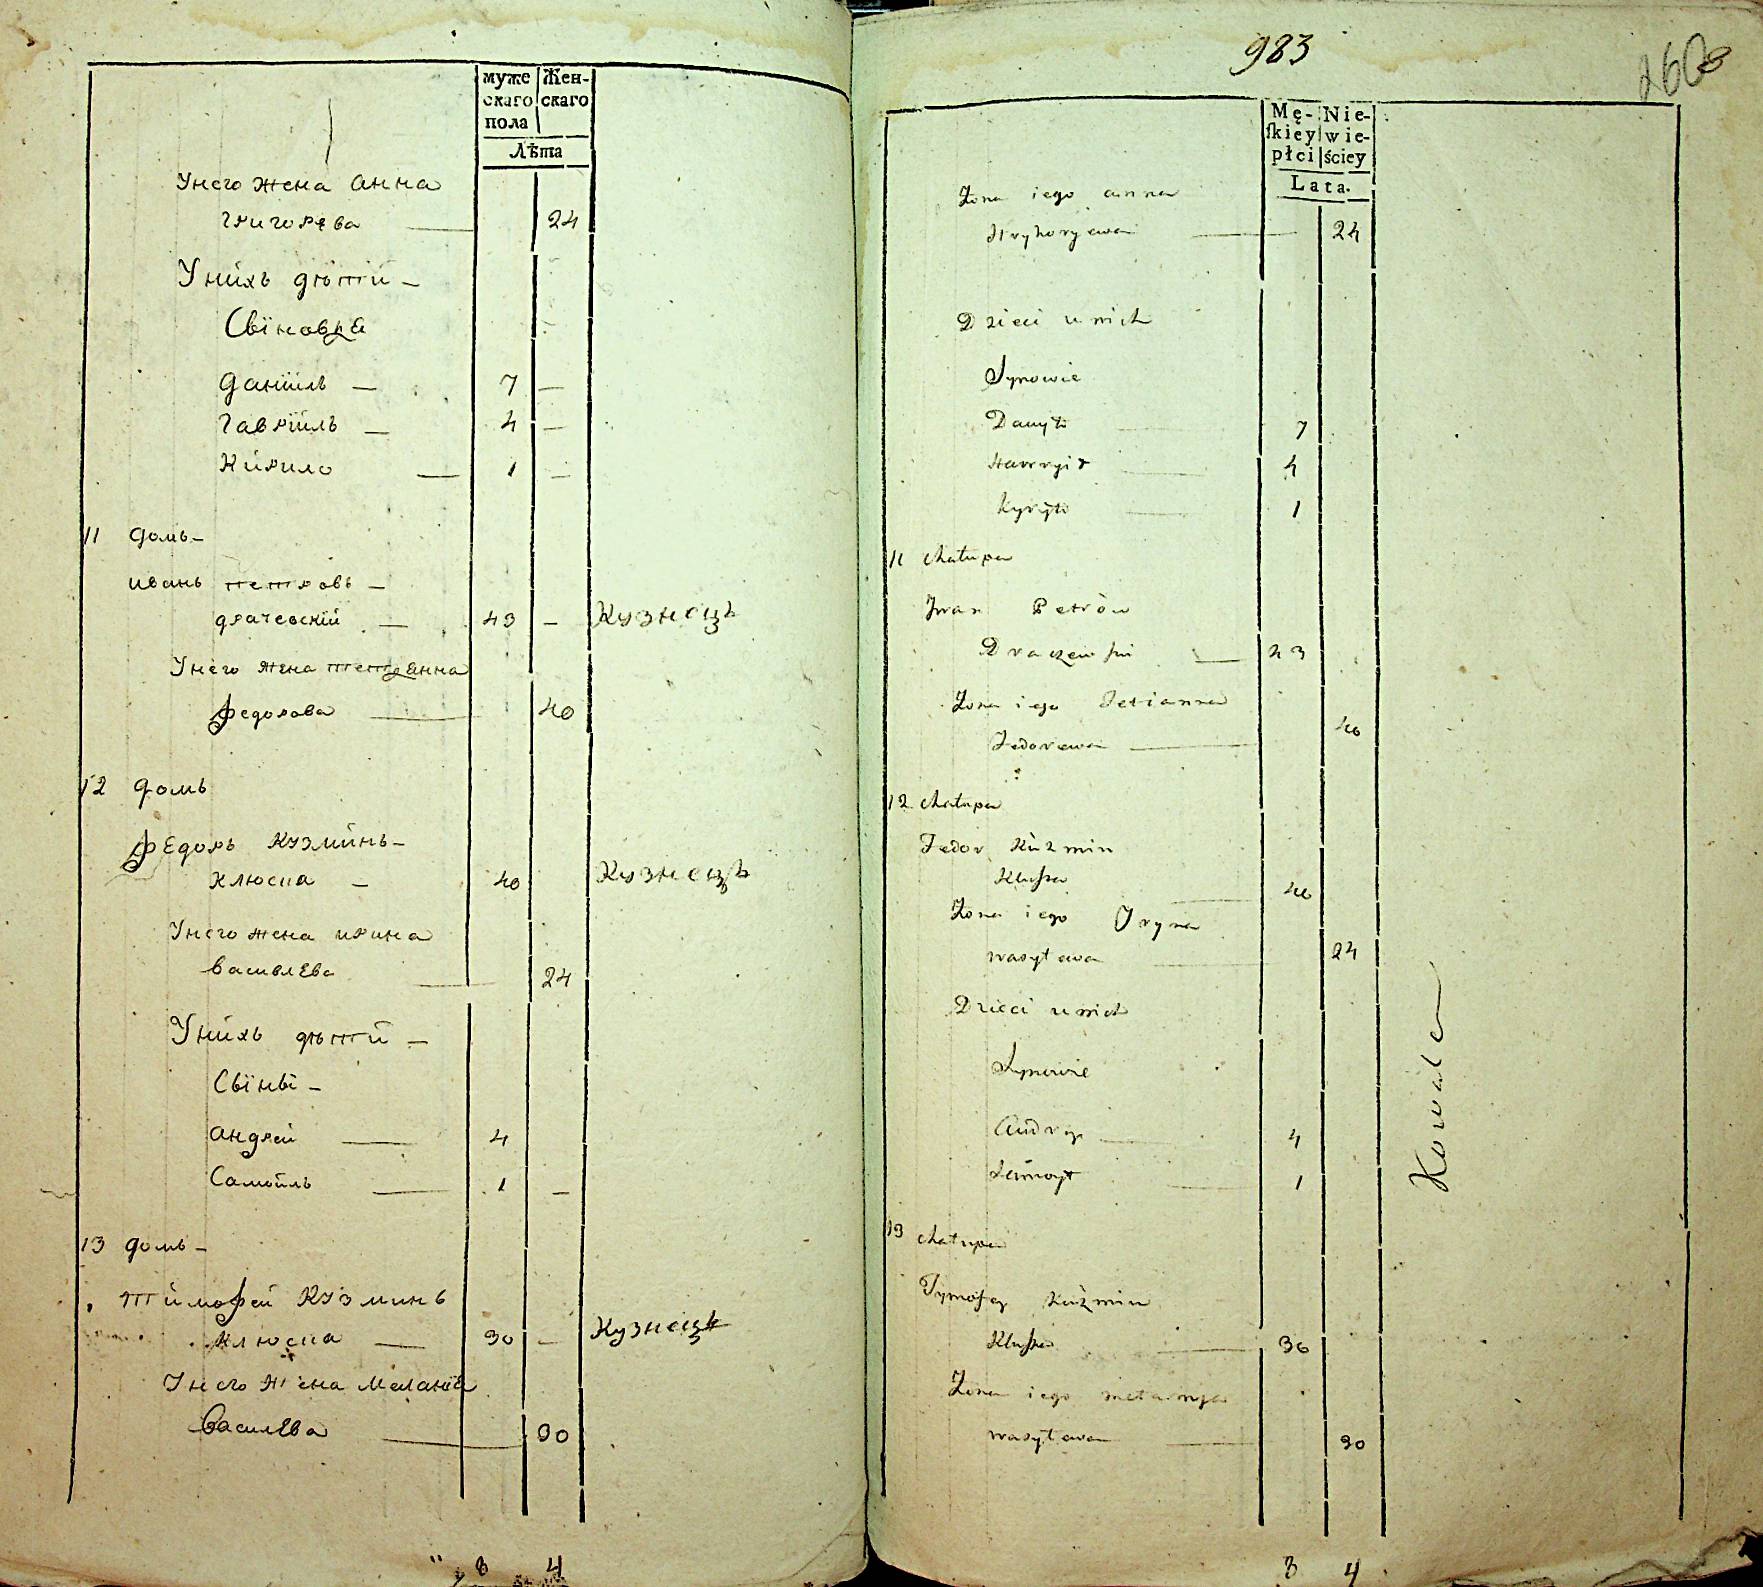 муже Жен-
скаго скаго
пола
Лѣта
Унего жена анна
григорева 24
Унихъ дѣтй
Сиіновя
данііль 7
гавріиль 4
Кирило 1
11 домъ
иванъ петровъ
драчевскій 43 Кузнецъ
Унего жена тетянна
федорова 40
12 домъ
федоръ кузминъ
клюспа 40 Кузнецъ
Унего жена ирина
василева 24
Унихъ дѣтй
андрей 4
Самойль 1
13 домъ
тимофей кузминъ
клюспа 30 Кузнецъ
Унего жена меланія
василева 30
8 4
983
Mę- Nie-
ſkiey wie-
płci ściey
Lata.
Żona iego anna
Hryhoryewa 24
Dzieci u nich
Synowie
Danyło 7
Hawryił 4
Kyryło 1
11 chałupa
Jwan Petrów
Draczewſki 43
Żona iego Tetianna
Fedorowa 40
12 chałupa
Fedor Kuźmin
40
Żona iego Jryna
wasylewa 24
Dzieci u nich
Synowie
Andrey 4
Samoył 1
13 chałupa
Tymofey Kuźmin
30
Żona iego Melanyja
wasylewa 30
Kowale
8 4